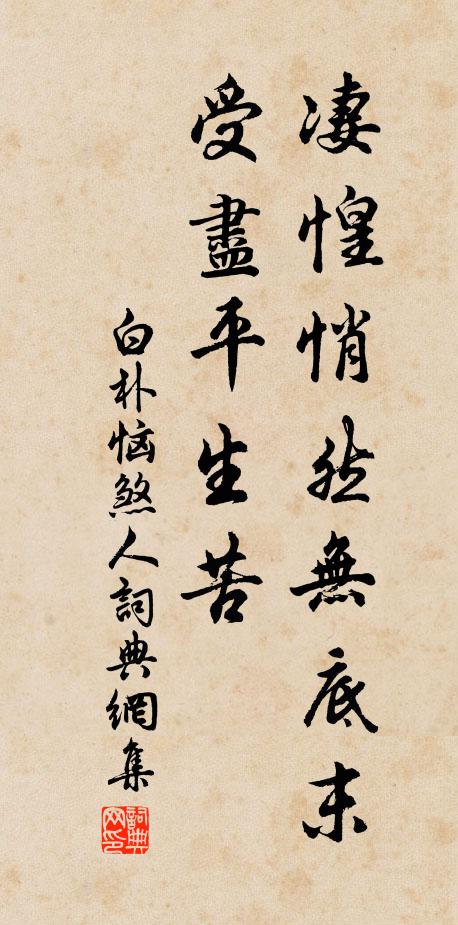 凄惶悄然無底末
受盡平生苦
白朴惱煞人詞典網集
詞典网印